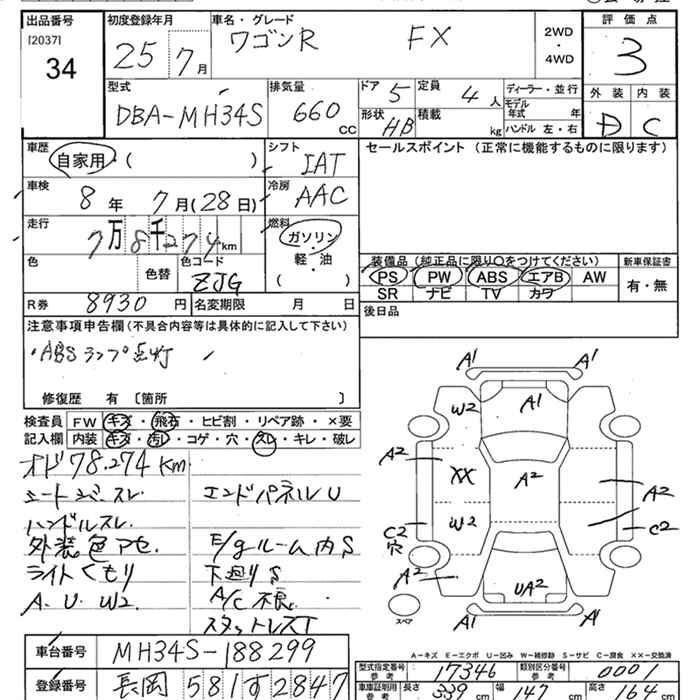 出品番号 初度登録年月 車名・グレード 評価点
[2037] 34 25 7月 ワゴンR FX 2WD・4WD 3
型式 排気量 ドア 5 定員 4人 ディーラー・並行 外装 内装
DBA-MH34S 660 cc 形状 HB 積載 kg モデル年式 年 D C
ハンドル 左・右
車歴 自家用・( ) シフト IAT セールスポイント(正常に機能するものに限ります)
車検 8年 7月(28日) 冷房 AAC
走行 7万8千274km 燃料 ガソリン・軽・油・( )
色 色替 色コード ZJG 装備品(純正品に限り○をつけてください) 新車保証書
PS PW ABS エアB AW 有・無
SR ナビ TV カワ
R券 8930円 名変期限 月 日 後日品
注意事項申告欄(不具合内容等は具体的に記入して下さい)
・ABSランプ点灯
修復歴 有 〔箇所 〕
検査員 FW キズ・飛石・ヒビ割・リペア跡・×要
記入欄 内装 キズ・汚レ・コゲ・穴・スレ・キレ・破レ
オド78.274Km
シートシバースレ. エンドパネルU
ハンドルスレ.
外装色アセ. E/gルーム内S
ライトくもり 下廻りS
A.U.W2. A/C不良.
スタットレスT
A1 A1
W2 A1
A2 XX A2 A2
C2 穴 W2 C2
A2 UA2
A1 A1
スペア
A-キズ E-エクボ U-凹み W-補修跡 S-サビ C-腐食 XX-交換済
車台番号 MH34S-188299 型式指定番号 参考 17346 類別区分番号 参考 0001
登録番号 長岡 581す2847 車庫証明用 参考 長さ 339cm 幅 147cm 高さ 164cm